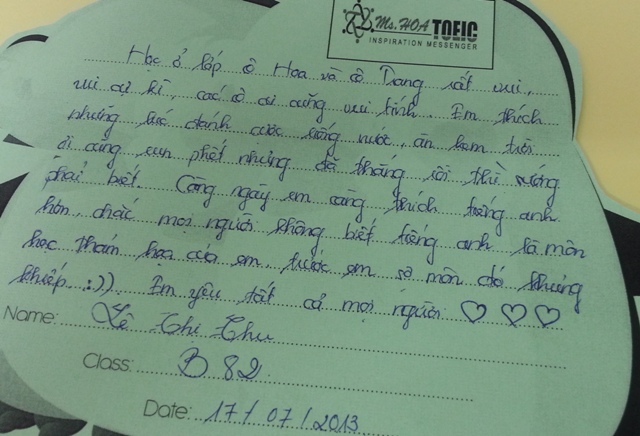 Ms. HOA TOEIC
INSPIRATION MESSENGER
Học ở lớp cô Hoa và cô Trang rất vui,
vui cực kì, các cô cũng vui tính. Em thích
những lúc đánh cược uống nước, ăn kem tươi
đi cùng cun phết nhưng đã thắng rồi thì sướng
phải biết. Càng ngày em càng thích tiếng anh
hơn, chắc mọi người không biết tiếng anh là môn
học thảm họa của em, trước em sợ môn đó khủng
khiếp :)). Em yêu tất cả mọi người ♡ ♡ ♡
Name: Lê Thị Thu
Class: B 82
Date: 17 / 07 / 2013